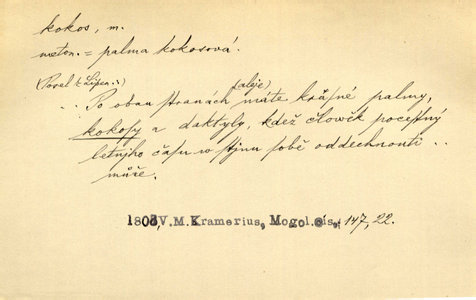 kokos, m.
meton. = palma kokosová.
(Popel z Lipen..)
.. Po obau stranách (aleje) máte krásné palmy,
kokosy a daktyly, kdež člowěk pocestný
letnjho času w stjnu sobě oddechnauti ..
může.
1808, V.M.Kramerius, Mogol.cís. 147, 22.